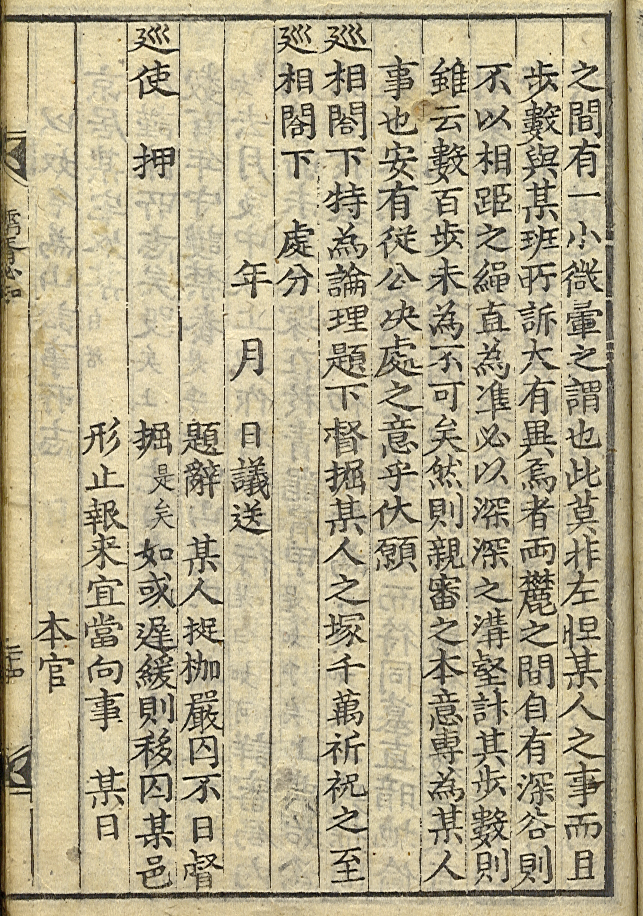 之間有一小微䨓之謂也此莫非左怛某人之事而且
步數與某班所訴大有異焉者兩麓之間自有深谷則
不以相距之繩直為准必以深深之溝壑計其步數則
雖云數百步未為不可矣然則親審之本意專為某人
事也安有從公决處之意乎伏願
廵相閤下特為論理題下督掘某人之塚千萬祈祝之至
廵相閤下 處分
年 月 日議送
廵使 押
題辭 某人捉枷嚴囚不日督
掘是矣如或遲緩則移囚某邑
形止報来宜當向事 某日
本官